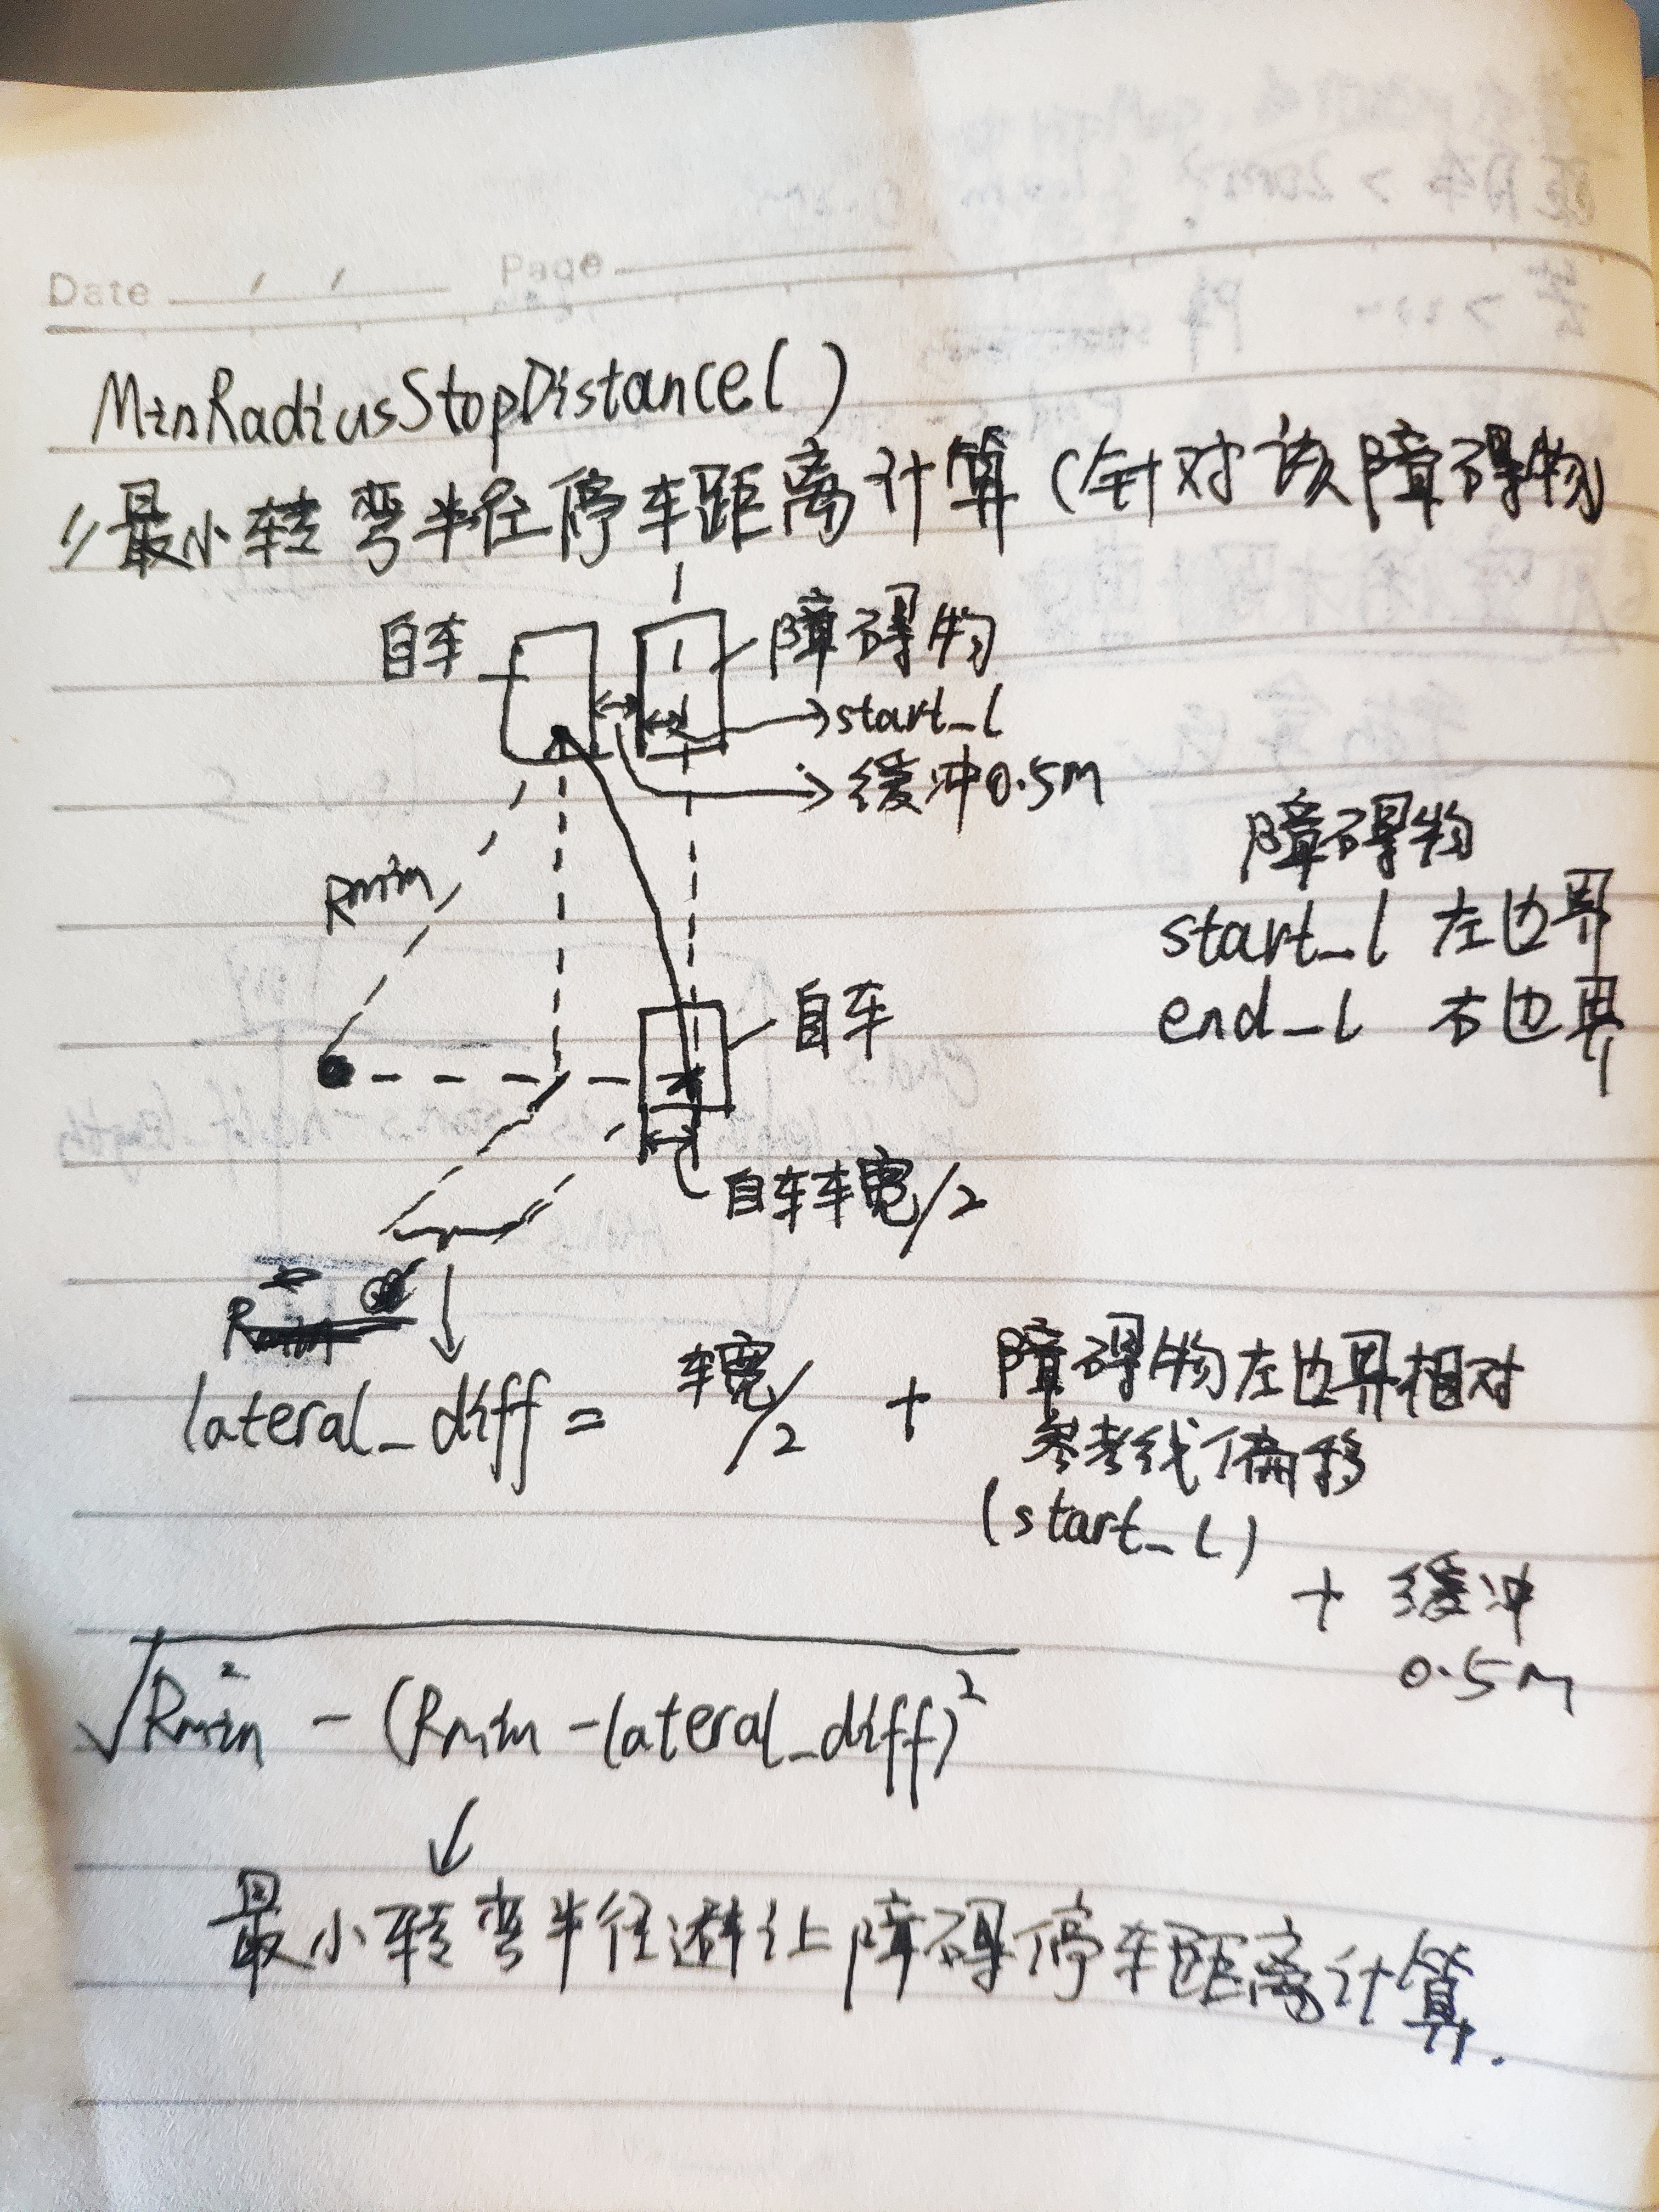 Date / / Page
MinRadiusStopDistance()
//最小转弯半径停车距离计算(针对该障碍物
自车
障碍物
start_l
缓冲0.5m
Rmin
障碍物
start_l 左边界
end_l 右边界
自车
自车车宽/2
lateral_diff = 车宽/2 + 障碍物左边界相对
参考线偏移
(start_l)
+ 缓冲
0.5m
√Rmin² - (Rmin - lateral_diff)²
最小转弯半径避让障碍停车距离计算.